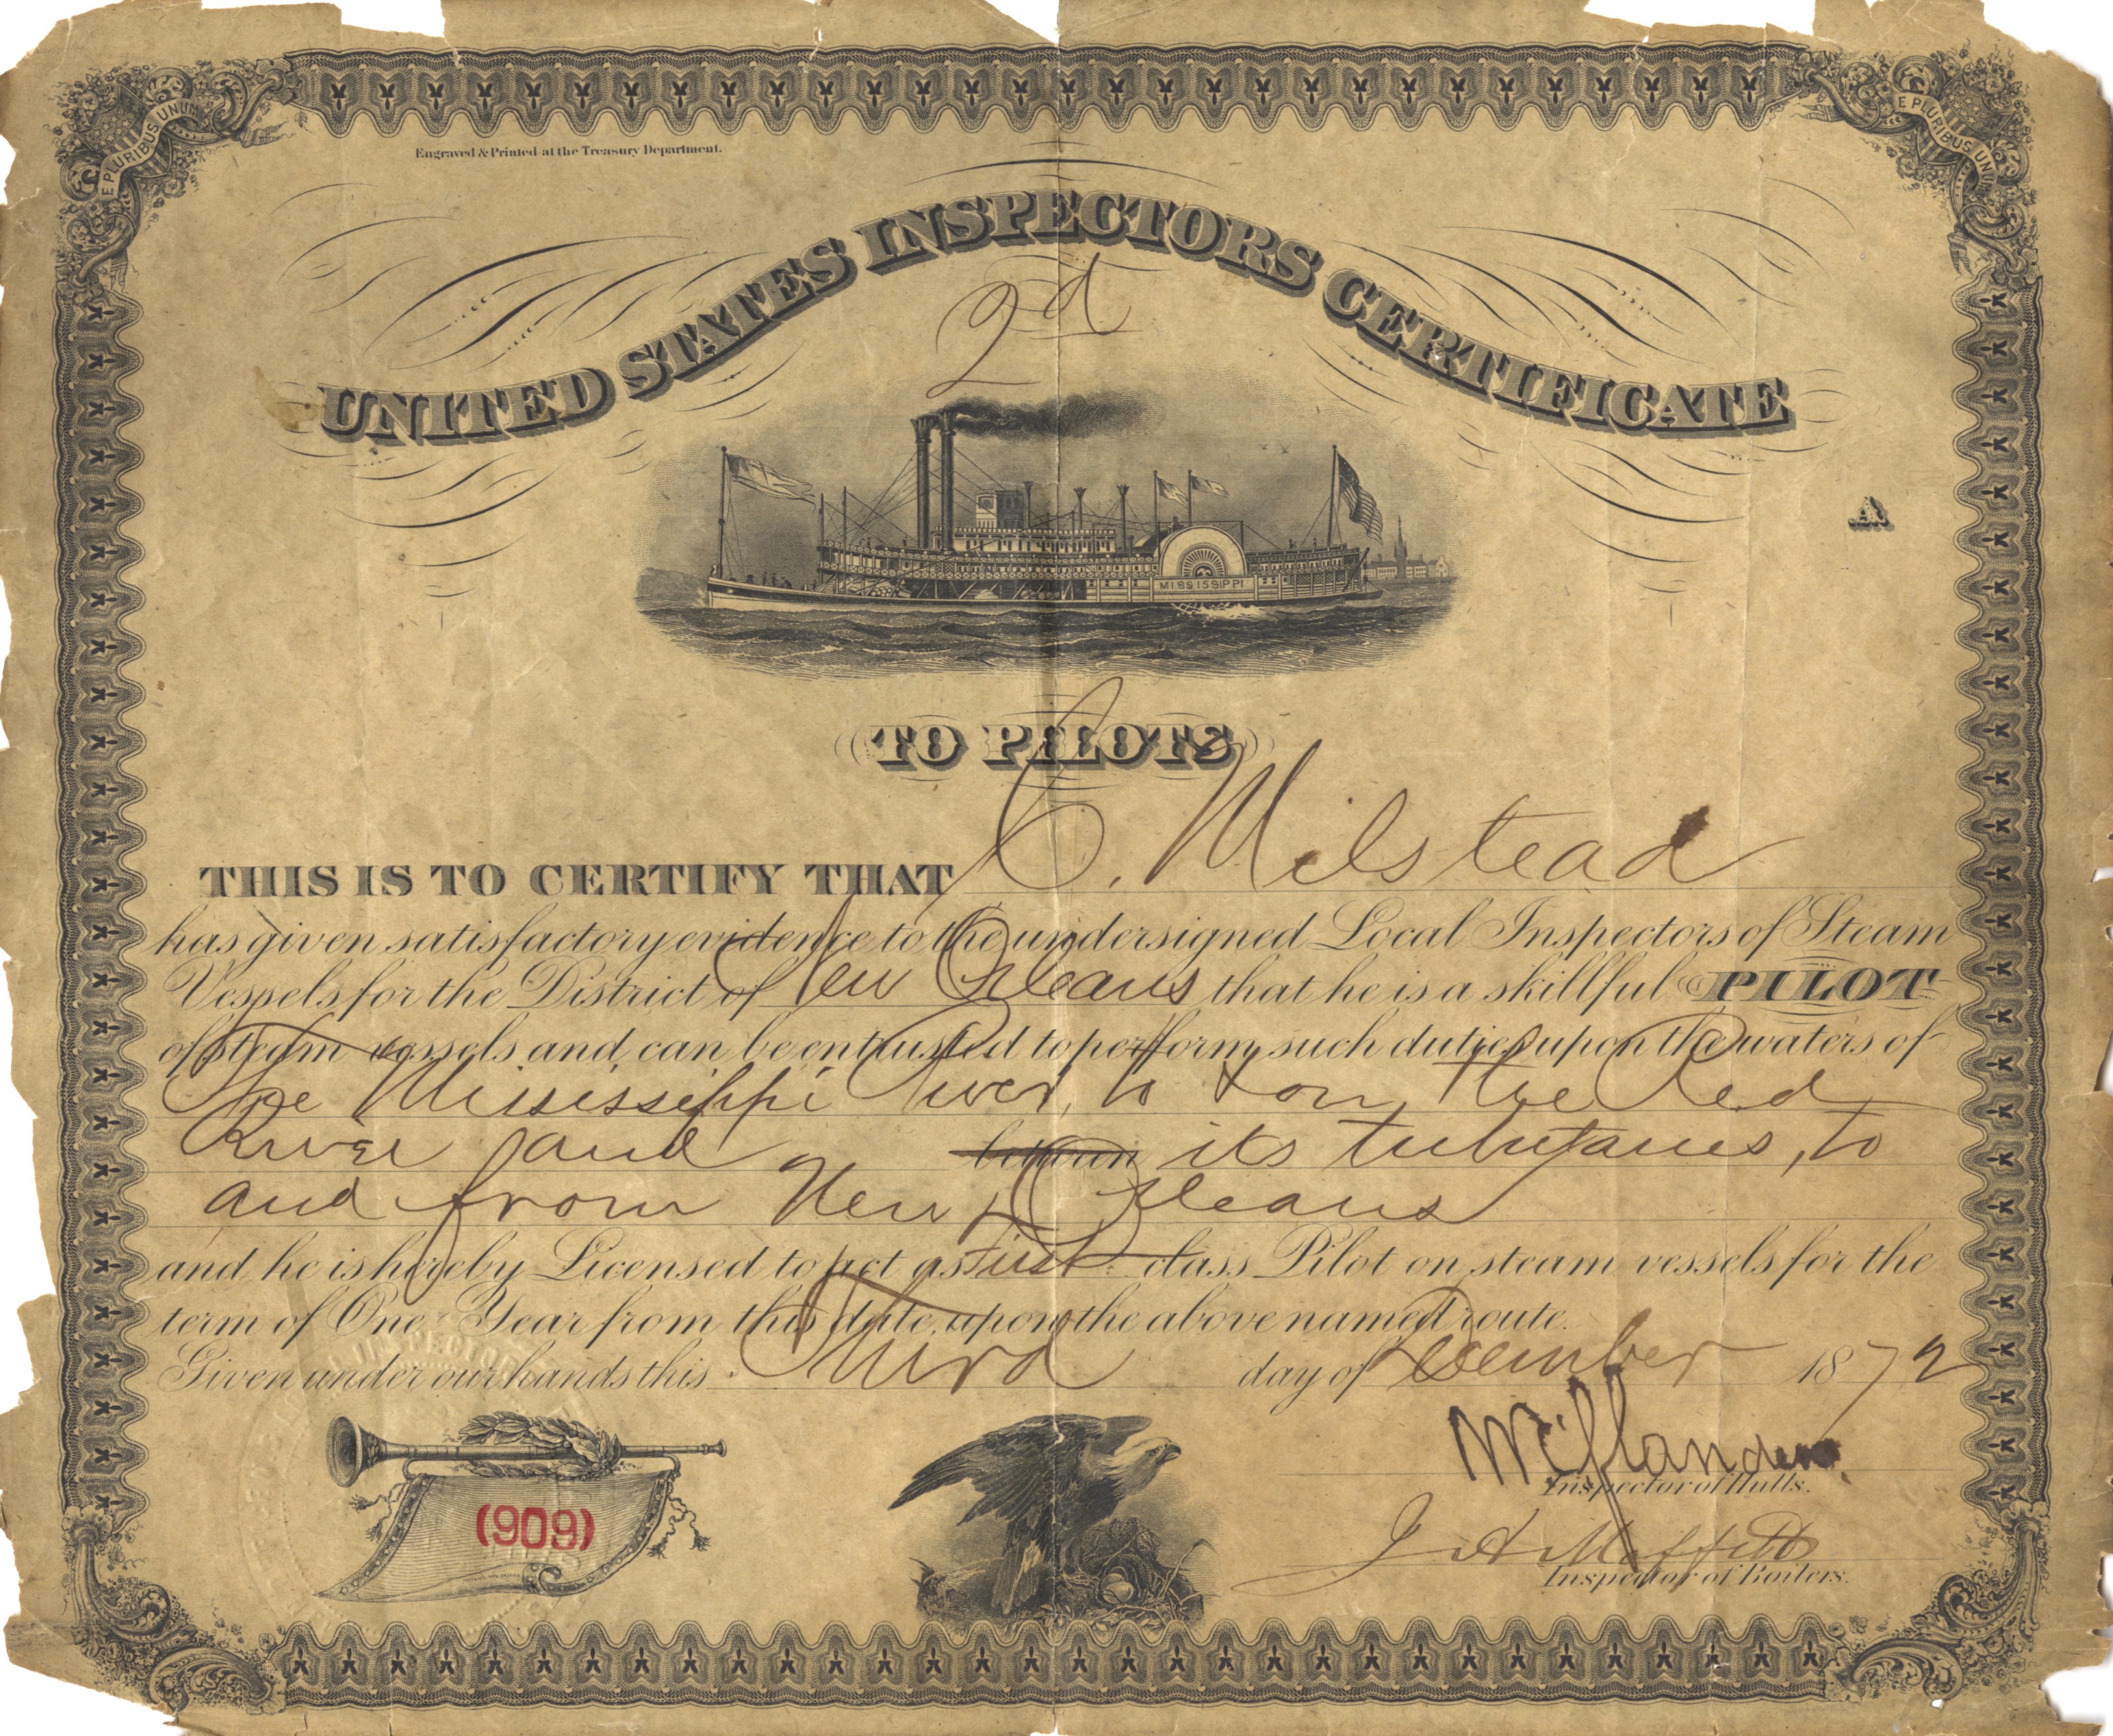 E PLURIBUS UNUM
E PLURIBUS UNUM
Engraved & Printed at the Treasury Department.
UNITED STATES INSPECTORS CERTIFICATE
2d
A
MISSISSIPPI
TO PILOTS
THIS IS TO CERTIFY THAT C. Milstead
has given satisfactory evidence to the undersigned Local Inspectors of Steam
Vessels for the District of New Orleans that he is a skillful PILOT
of steam vessels and can be entrusted to perform such duties upon the waters of
The Mississippi River, to & from, the Red
River and between its tributaries, to
and from New Orleans
and he is hereby Licensed to act as First class Pilot on steam vessels for the
term of One Year from this date, upon the above named route.
Given under our hands this Third day of December 1872
Inspector of Hulls.
(909)
J A Moffett
Inspector of Boilers.